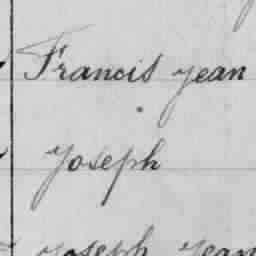 Francis Jean
Joseph
Joseph Jean